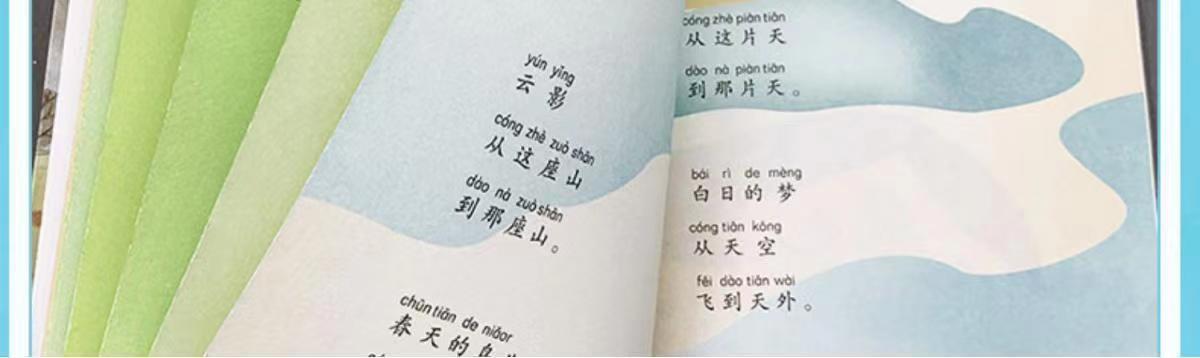 yún yǐng
云影
cóng zhè zuò shān
从这座山
dào nà zuò shān
到那座山。
chūn tiān de niǎor
春天的鸟
cóng zhè piàn tiān
从这片天
dào nà piàn tiān
到那片天。
bái rì de mèng
白日的梦
cóng tiān kōng
从天空
fēi dào tiān wài
飞到天外。